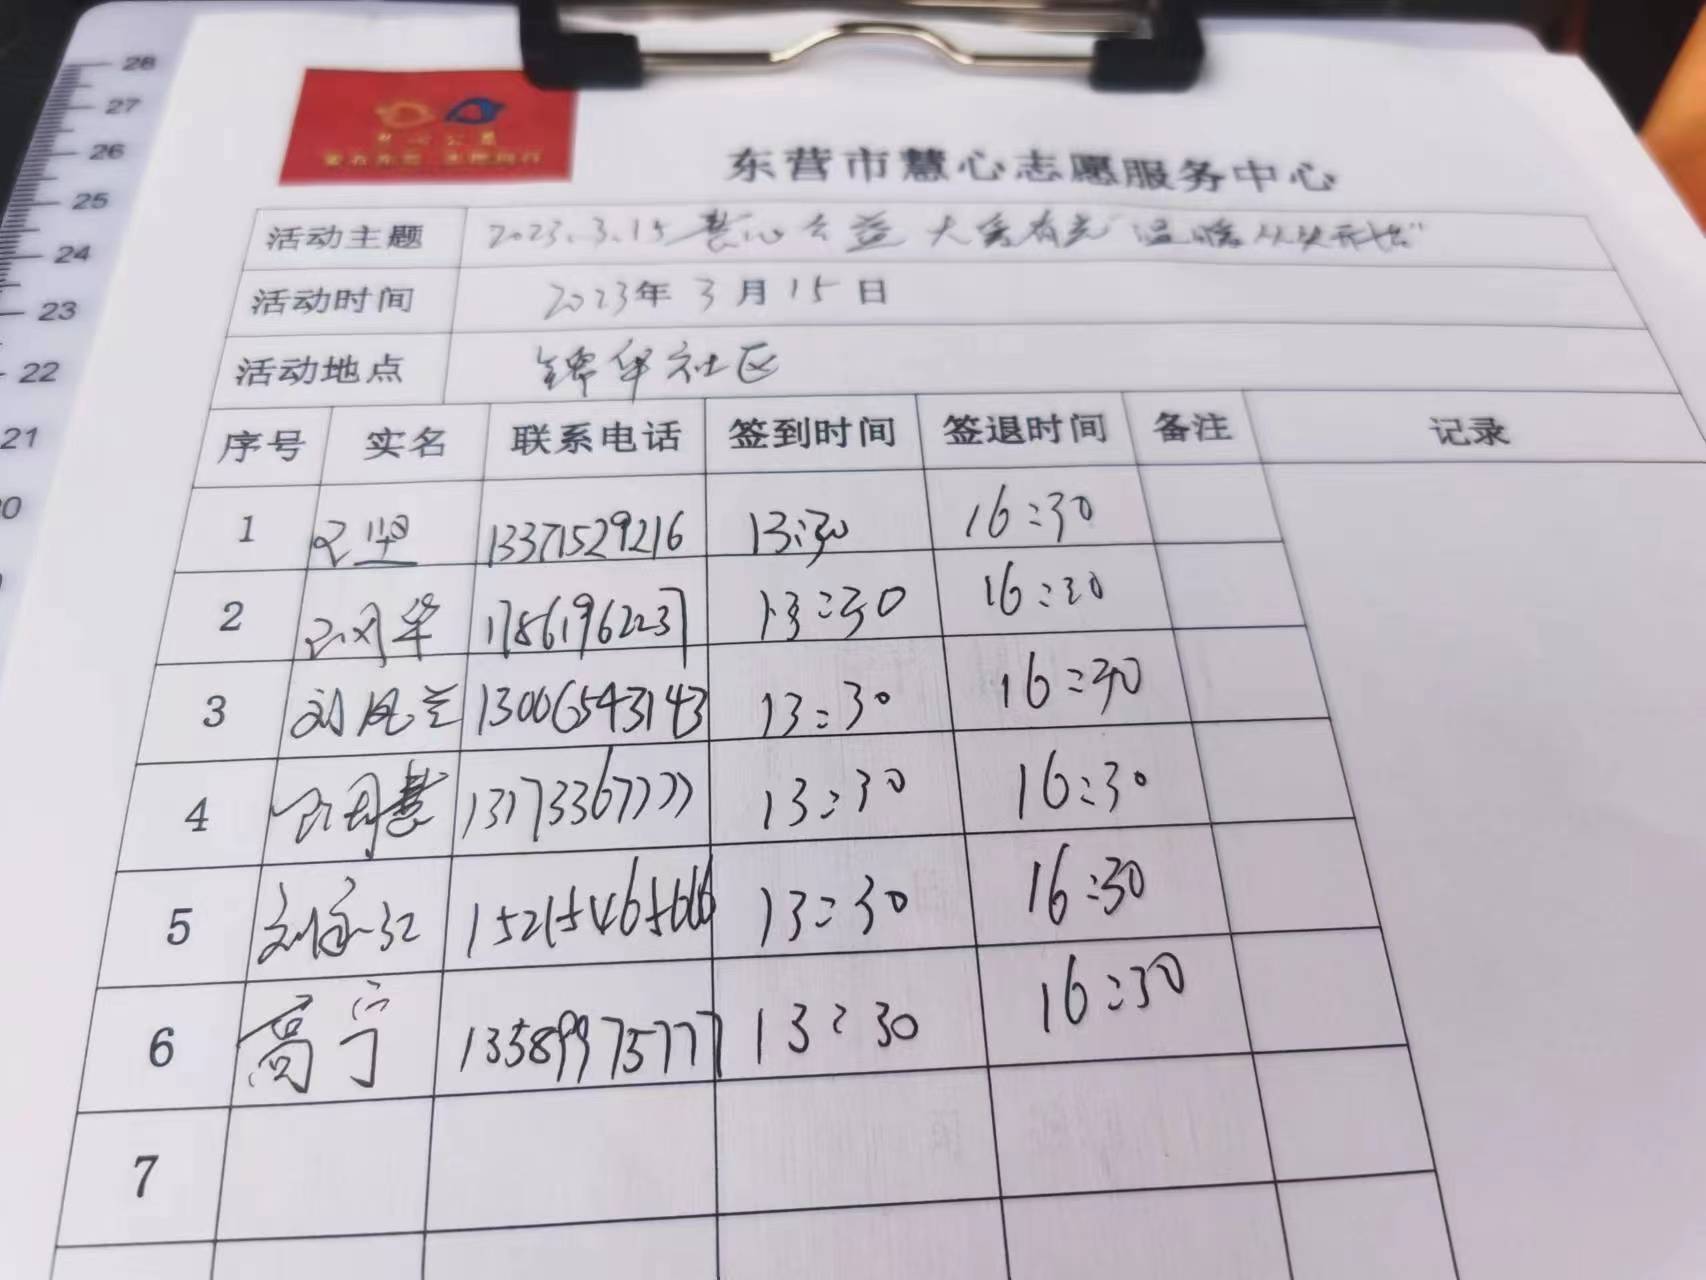 28
27
26
25
24
23
22
21
东营市慧心志愿服务中心
活动主题 2023.3.15 慧心公益 大爱有光"温暖从头开始"
活动时间 2023年3月15日
活动地点 锦华社区
序号 实名 联系电话 签到时间 签退时间 备注 记录
1 13371529216 13:30 16:30
2 17861962237 13:30 16:30
3 刘凤兰 13006543143 13:30 16:30
4 13173367777 13:30 16:30
5 13:30 16:30
6 高宁 13589975777 13:30 16:30
7